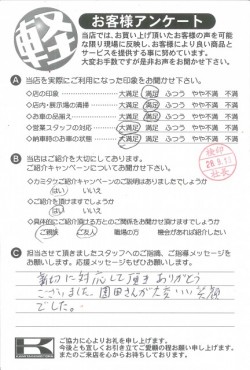 軽
お客様アンケート
当店では、お買い上げ頂いたお客様の声を可能
な限り現場に反映し、お客様により良い商品と
サービスを提供する事に努めています。
大変お手数ですが是非お声をお聞かせ下さい。
A 当店を実際にご利用になった印象をお聞かせ下さい。
◇店の印象 大満足 満足 ふつう やや不満 不満
◇店内・展示場の清掃 大満足 満足 ふつう やや不満 不満
◇お車の品揃え 大満足 満足 ふつう やや不満 不満
◇営業スタッフの対応 大満足 満足 ふつう やや不満 不満
◇納車時のお車の状態 大満足 満足 ふつう やや不満 不満
B 当店はご紹介を大切にしてあります。
ご紹介キャンペーンについてお聞かせ下さい。
◇カミタケご紹介キャンペーンのご説明はありましたでしょうか
はい いいえ
◇ご紹介して頂けますでしょうか
はい いいえ
◇具体的にご紹介頂ける方とのご関係をお聞かせ頂けますでしょうか
ご親族 ご友人 職場の方 機会があれば紹介したい
社長
C 担当させて頂きましたスタッフへのご指摘、ご指導メッセージを
お願いします。応援メッセージもぜひお願い致します。
親切に対応して頂きありがとう
ございました。園田さんが大変いい笑顔
でした。
K
ご協力に心よりお礼を申し上げます。
今後とも宜しくお引き立てご愛顧の程お願い申し上げます。
またのご来店を心からお待ちしております。